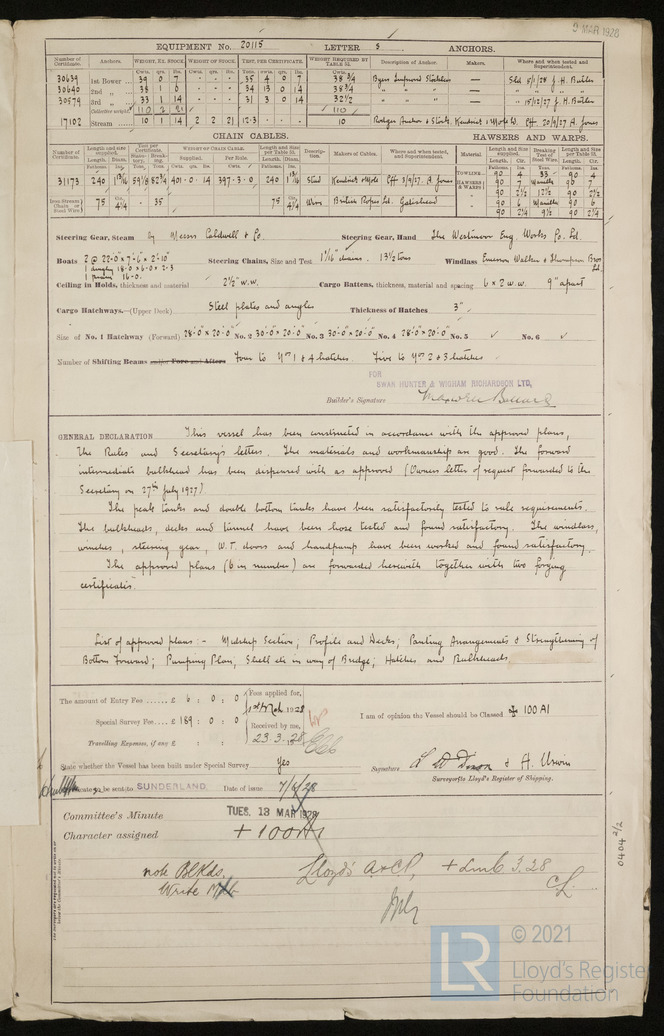 2 MAR 1928
EQUIPMENT No. 20115 LETTER S ANCHORS.
Number of Certificate. Anchors. WEIGHT, EX. STOCK. WEIGHT OF STOCK. TEST, PER CERTIFICATE. WEIGHT REQUIRED BY TABLE 31. Description of Anchor. Makers. Where and when tested and Superintendent.
30639 1st Bower 39 0 7 35 4 0 7 38 3/4 Byers Improved Stockless — Sld 5/1/28 J. H. Butler
30640 2nd " 38 1 6 34 13 0 14 38 3/4 " " " — " " " "
30579 3rd " 33 1 14 31 3 0 14 32 1/2 " " " — " 15/12/27 J. H. Butler
Collective weight 110 2 21 110
17102 Stream 10 1 14 2 2 21 12.3 10 20/9/27 A. Jones
CHAIN CABLES. HAWSERS AND WARPS.
Number of Certificate. Length and size supplied. Test per Certificate. WEIGHT OF CHAIN CABLE. Length and size per Table 31. Description. Makers of Cables. Where and when tested, and Superintendent. Material. Length and size supplied. Breaking Test of Steel Wire. Length and size per Table 31.
31173 240 1 13/16 401.0.14 397.3.0 240 1 13/16 Stud 3/9/27. A. Jones
TOWLINE 90 4 33 90 4
HAWSERS & WARPS 90 7 Manilla 90
" 90 2 1/2 12 1/2 90 2 1/2
" 90 6 Manilla 90 6
" 90 2 1/4 9 1/2 90 2 1/4
75 4 1/4 35 75 4 1/4 Wire British Ropes Ld. Gateshead
Steering Gear, Steam by Messrs Caldwell & Co. Steering Gear, Hand The Westmoor Eng. Works Co. Ld.
Boats 2 @ 22'-0" x 7'-6" x 2'-10" Steering Chains, Size and Test 1 1/16" chains. 13 1/2 tons Windlass Emerson Walker & Thompson Bros Ld.
1 dinghy 18-0 x 6-0 x 2-3
Ceiling in Holds, thickness and material 2 1/2" w.w. Cargo Battens, thickness, material and spacing 6 x 2 w.w. 9" apart
Cargo Hatchways.—(Upper Deck) Steel plates and angles Thickness of Hatches 3"
Size of No. 1 Hatchway (Forward) 28'-0" x 20'-0" No. 2 30'-0" x 20'-0" No. 3 30'-0" x 20'-0" No. 4 28'-0" x 20'-0" No. 5 ✓ No. 6 ✓
Number of Shifting Beams and/or Fore and Afters Four to Nos 1 & 4 hatches. Five to Nos 2 & 3 hatches
FOR
SWAN HUNTER & WIGHAM RICHARDSON LTD,
Builder's Signature
GENERAL DECLARATION This vessel has been constructed in accordance with the approved plans,
the Rules and Secretary's letters. The materials and workmanship are good. The forward
intermediate bulkhead has been dispensed with as approved (Owners letter of request forwarded to the
Secretary on 27th July 1927)
The peak tanks and double bottom tanks have been satisfactorily tested to rule requirements.
The bulkheads, decks and tunnel have been hose tested and found satisfactory. The windlass,
winches, steering gear, W.T. doors and handpump have been worked and found satisfactory.
The approved plans (6 in number) are forwarded herewith together with two forging
certificates.
List of approved plans :- Midship Section; Profile and Decks; Panting Arrangements & Strengthening of
Bottom Forward; Pumping Plan, Shell etc in way of Bridge, Hatches and Bulkheads.
The amount of Entry Fee ...... £ 6 : 0 : 0 Fees applied for, 1st Mch 1928
Special Survey Fee.... £ 189 : 0 : 0 Received by me, 23.3.28
Travelling Expenses, if any £ : :
I am of opinion the Vessel should be Classed ✠ 100 A1
State whether the Vessel has been built under Special Survey Yes
Signature & H. Urwin
Surveyors to Lloyd's Register of Shipping.
to be sent to SUNDERLAND Date of issue 7/6/28
Committee's Minute TUES. 13 MAR 1928
Character assigned + 100 A1
note Blkds. Lloyd's A&CP, + LMC 3.28
Write CL
0404 2/2
LR © 2021
Lloyd's Register
Foundation